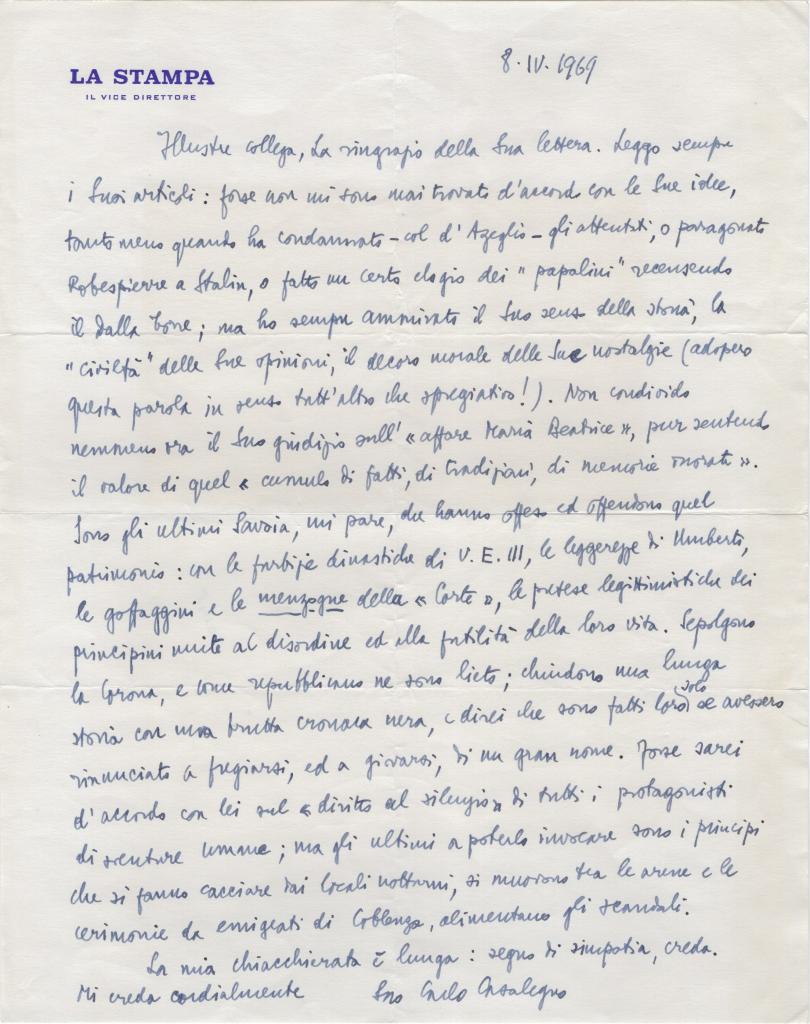 LA STAMPA
IL VICE DIRETTORE
8.IV.1969
Illustre collega, La ringrazio della Sua lettera. Leggo sempre
i Suoi articoli: forse non mi sono mai trovato d'accordo con le Sue idee,
tanto meno quando ha condannato – col d'Azeglio – gli attentati, o paragonato
Robespierre a Stalin, o fatto un certo elogio dei "papalini" recensendo
il Dalla Torre; ma ho sempre ammirato il Suo senso della storia, la
"civiltà" delle Sue opinioni, il decoro morale delle Sue nostalgie (adopero
questa parola in senso tutt'altro che spregiativo!). Non condivido
nemmeno ora il Suo giudizio sull'«affare Maria Beatrice», pur sentendo
il valore di quel «cumulo di fatti, di tradizioni, di memorie onorate».
Sono gli ultimi Savoia, mi pare, che hanno offeso ed offendono quel
patrimonio: con le furbizie dinastiche di V.E.III, le leggerezze di Umberto,
le goffaggini e le menzogne della «Corte», le pretese legittimistiche dei
principini unite al disordine ed alla futilità della loro vita. Sepolgono
la Corona, e come repubblicano ne sono lieto; chiudono una lunga
storia con una brutta cronaca nera, e direi che sono fatti loro solo se avessero
rinunciato a fregiarsi, ed a giovarsi, di un gran nome. Forse sarei
d'accordo con lei sul «diritto al silenzio» di tutti i protagonisti
di sventure umane; ma gli ultimi a poterlo invocare sono i principi
che si fanno cacciare dai locali notturni, si muovono tra le arene e le
cerimonie da emigrati di Coblenza, alimentano gli scandali.
La mia chiacchierata è lunga: segno di simpatia, creda.
Mi creda cordialmente Suo Carlo Casalegno